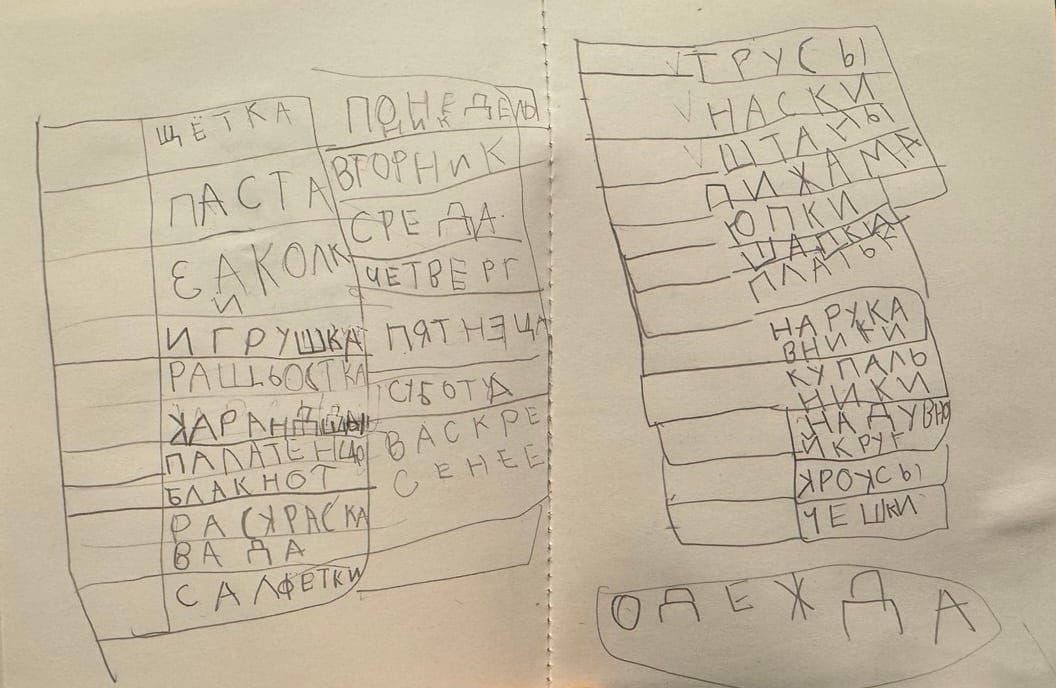 ЩЁТКА
ПАСТА
ЗАКОЛК
И
ИГРУШКА
РАЩЬОСТКА
КАРАНДДШЫ
ПАЛАТЕНЦО
БЛАКНОТ
РАСКРАСКА
ВАДА
САЛФЕТКИ
ПОНЕДЕЛЬ
НИК
ВТОРНИК
СРЕДА
ЧЕТВЕРГ
ПЯТНЕЦА
СУБОТА
ВАСКРЕ
СЕНЕЕ
ТРУСЫ
НАСКИ
ШТАНЫ
ПИЖАМА
ЮПКИ
ШАПКИ
ПЛАТЬЕ
НАРУКА
ВНИКИ
КУПАЛЬ
НИКИ
НАДУВНО
Й КРУГ
КРОКСЫ
ЧЕШКИ
ОДЕЖДА